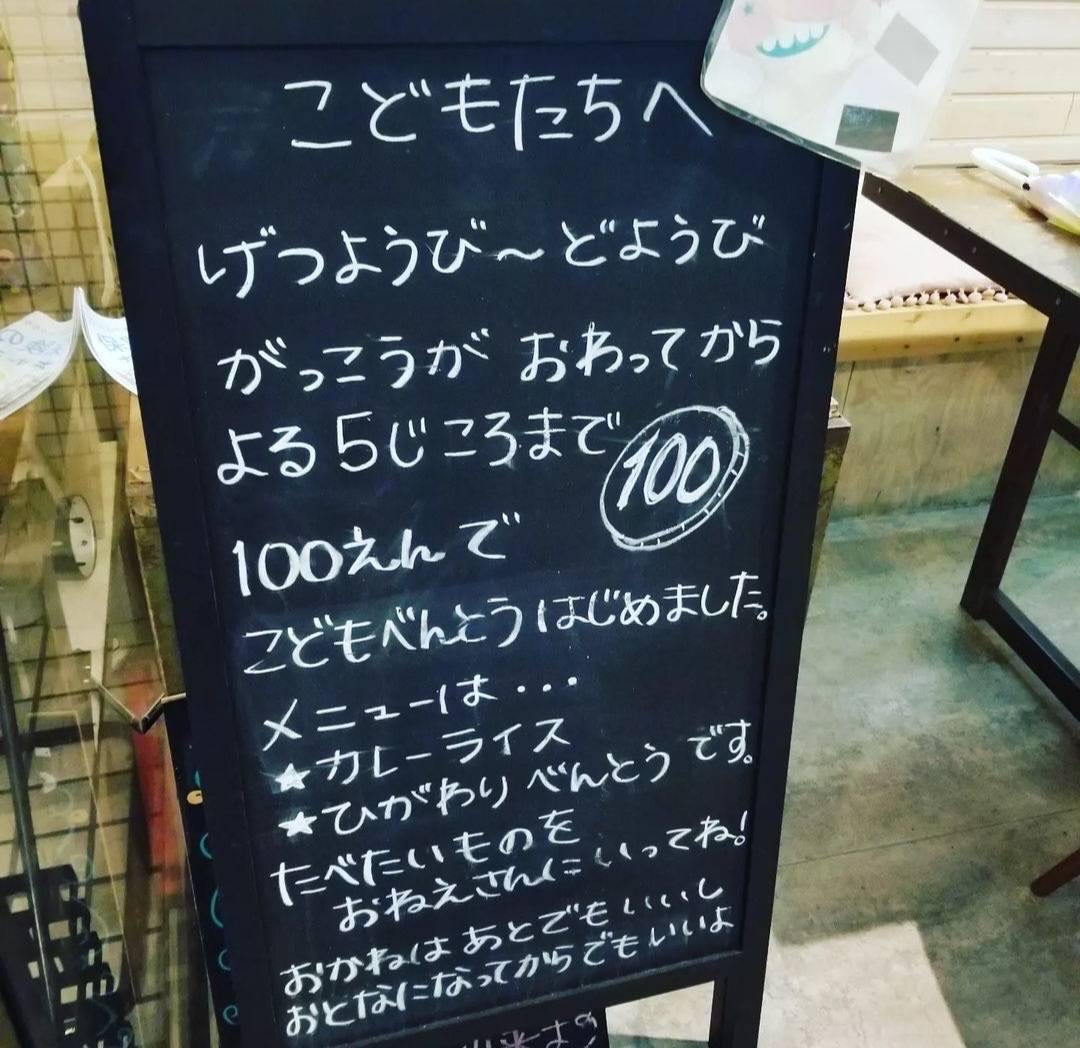 こどもたちへ
げつようび～どようび
がっこうが おわってから
よる5じころまで
100
100えんで
こどもべんとうはじめました。
メニューは・・・
★カレーライス
★ひがわりべんとうです。
たべたいものを
おねえさんにいってね!
おかねはあとでもいいし
おとなになってからでもいいよ